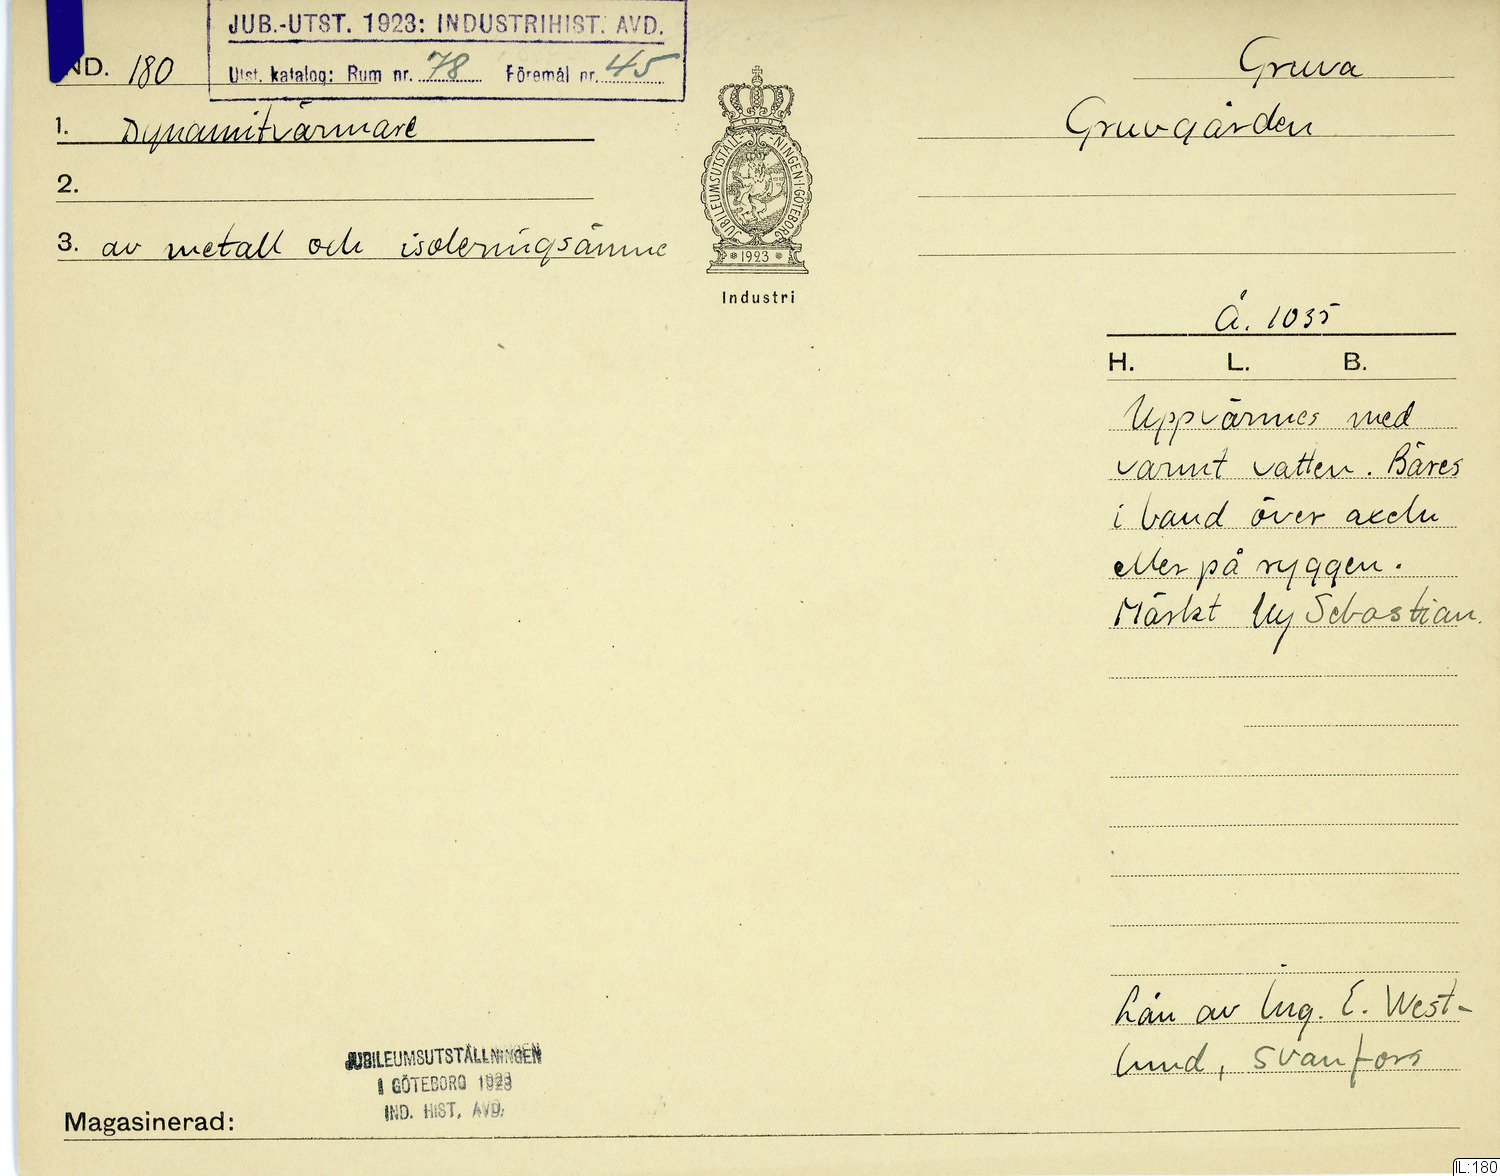 JUB.-UTST. 1923: INDUSTRIHIST. AVD.
Utst. katalog: Rum nr. 78 Föremål nr. 45
IND. 180
1. Dynamitvärmare
2.
3. av metall och isoleringsämne
JUBILEUMSUTSTÄLLNINGEN·I·GÖTEBORG
1923
Industri
Gruva
Gruvgården
Å. 1035
H. L. B.
Uppvärmes med
varmt vatten. Bäres
i band över axeln
eller på ryggen.
Märkt Ny Sebastian.
Lån av Ing. E. West-
lund, Svanfors
JUBILEUMSUTSTÄLLNINGEN
I GÖTEBORG 1923
IND. HIST. AVD.
Magasinerad:
IL:180